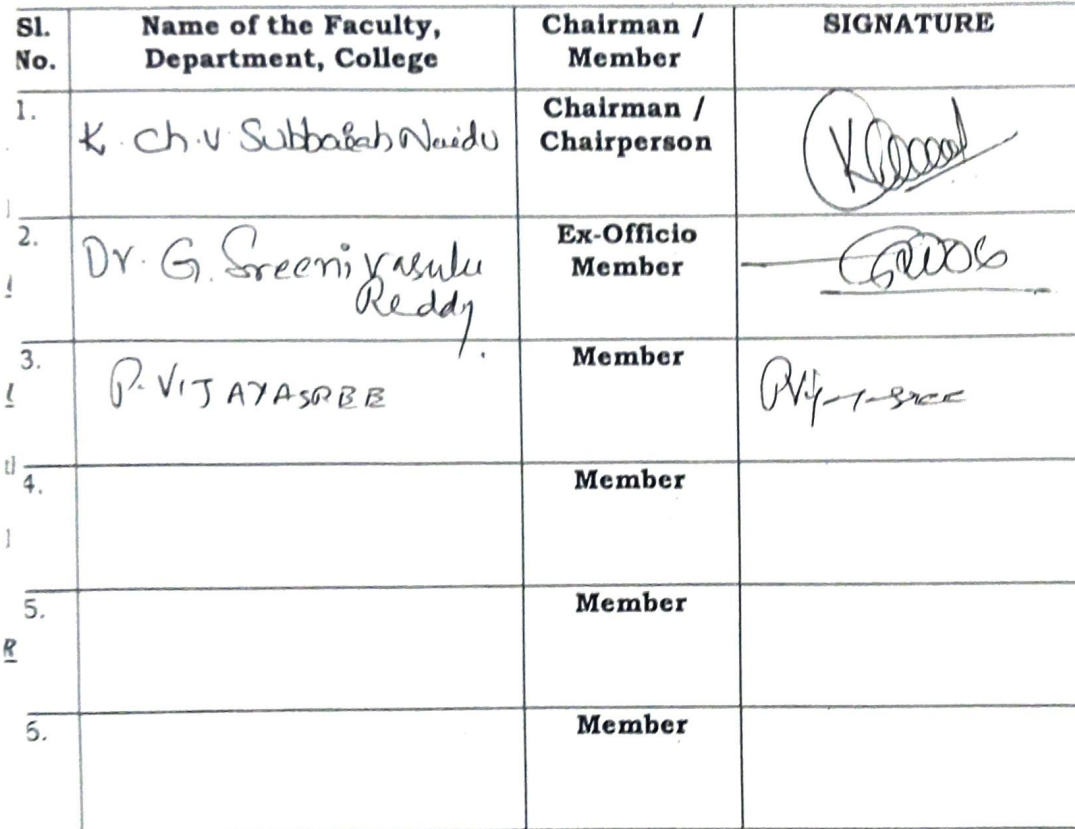 Sl. No. Name of the Faculty, Department, College Chairman / Member SIGNATURE
1. K. Ch. V Subbaiah Naidu Chairman / Chairperson
2. Dr. G. Sreenivasulu Reddy Ex-Officio Member
3. P. VIJAYASREE Member
4. Member
5. Member
5. Member